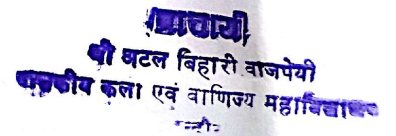 प्राचार्य
श्री अटल बिहारी वाजपेयी
शासकीय कला एवं वाणिज्य महाविद्यालय